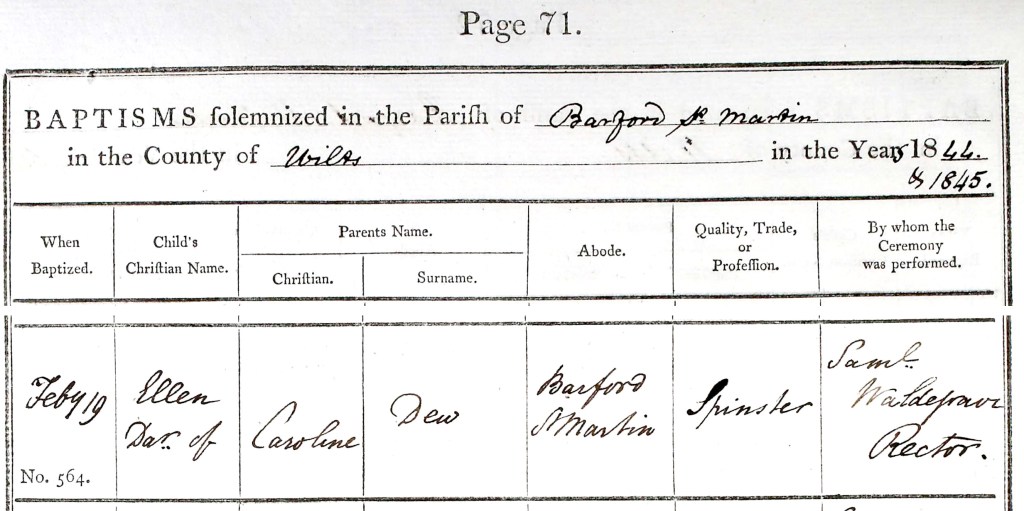 Page 71.
BAPTISMS solemnized in the Parish of Barford St. Martin
in the County of Wilts in the Years 1844.
& 1845.
When Baptized.
Child's Christian Name.
Parents Name.
Christian.
Surname.
Abode.
Quality, Trade, or Profession.
By whom the Ceremony was performed.
Feby 19
No. 564.
Ellen
Dar. of
Caroline
Dew
Barford
St Martin
Spinster
Saml.
Waldegrave
Rector.